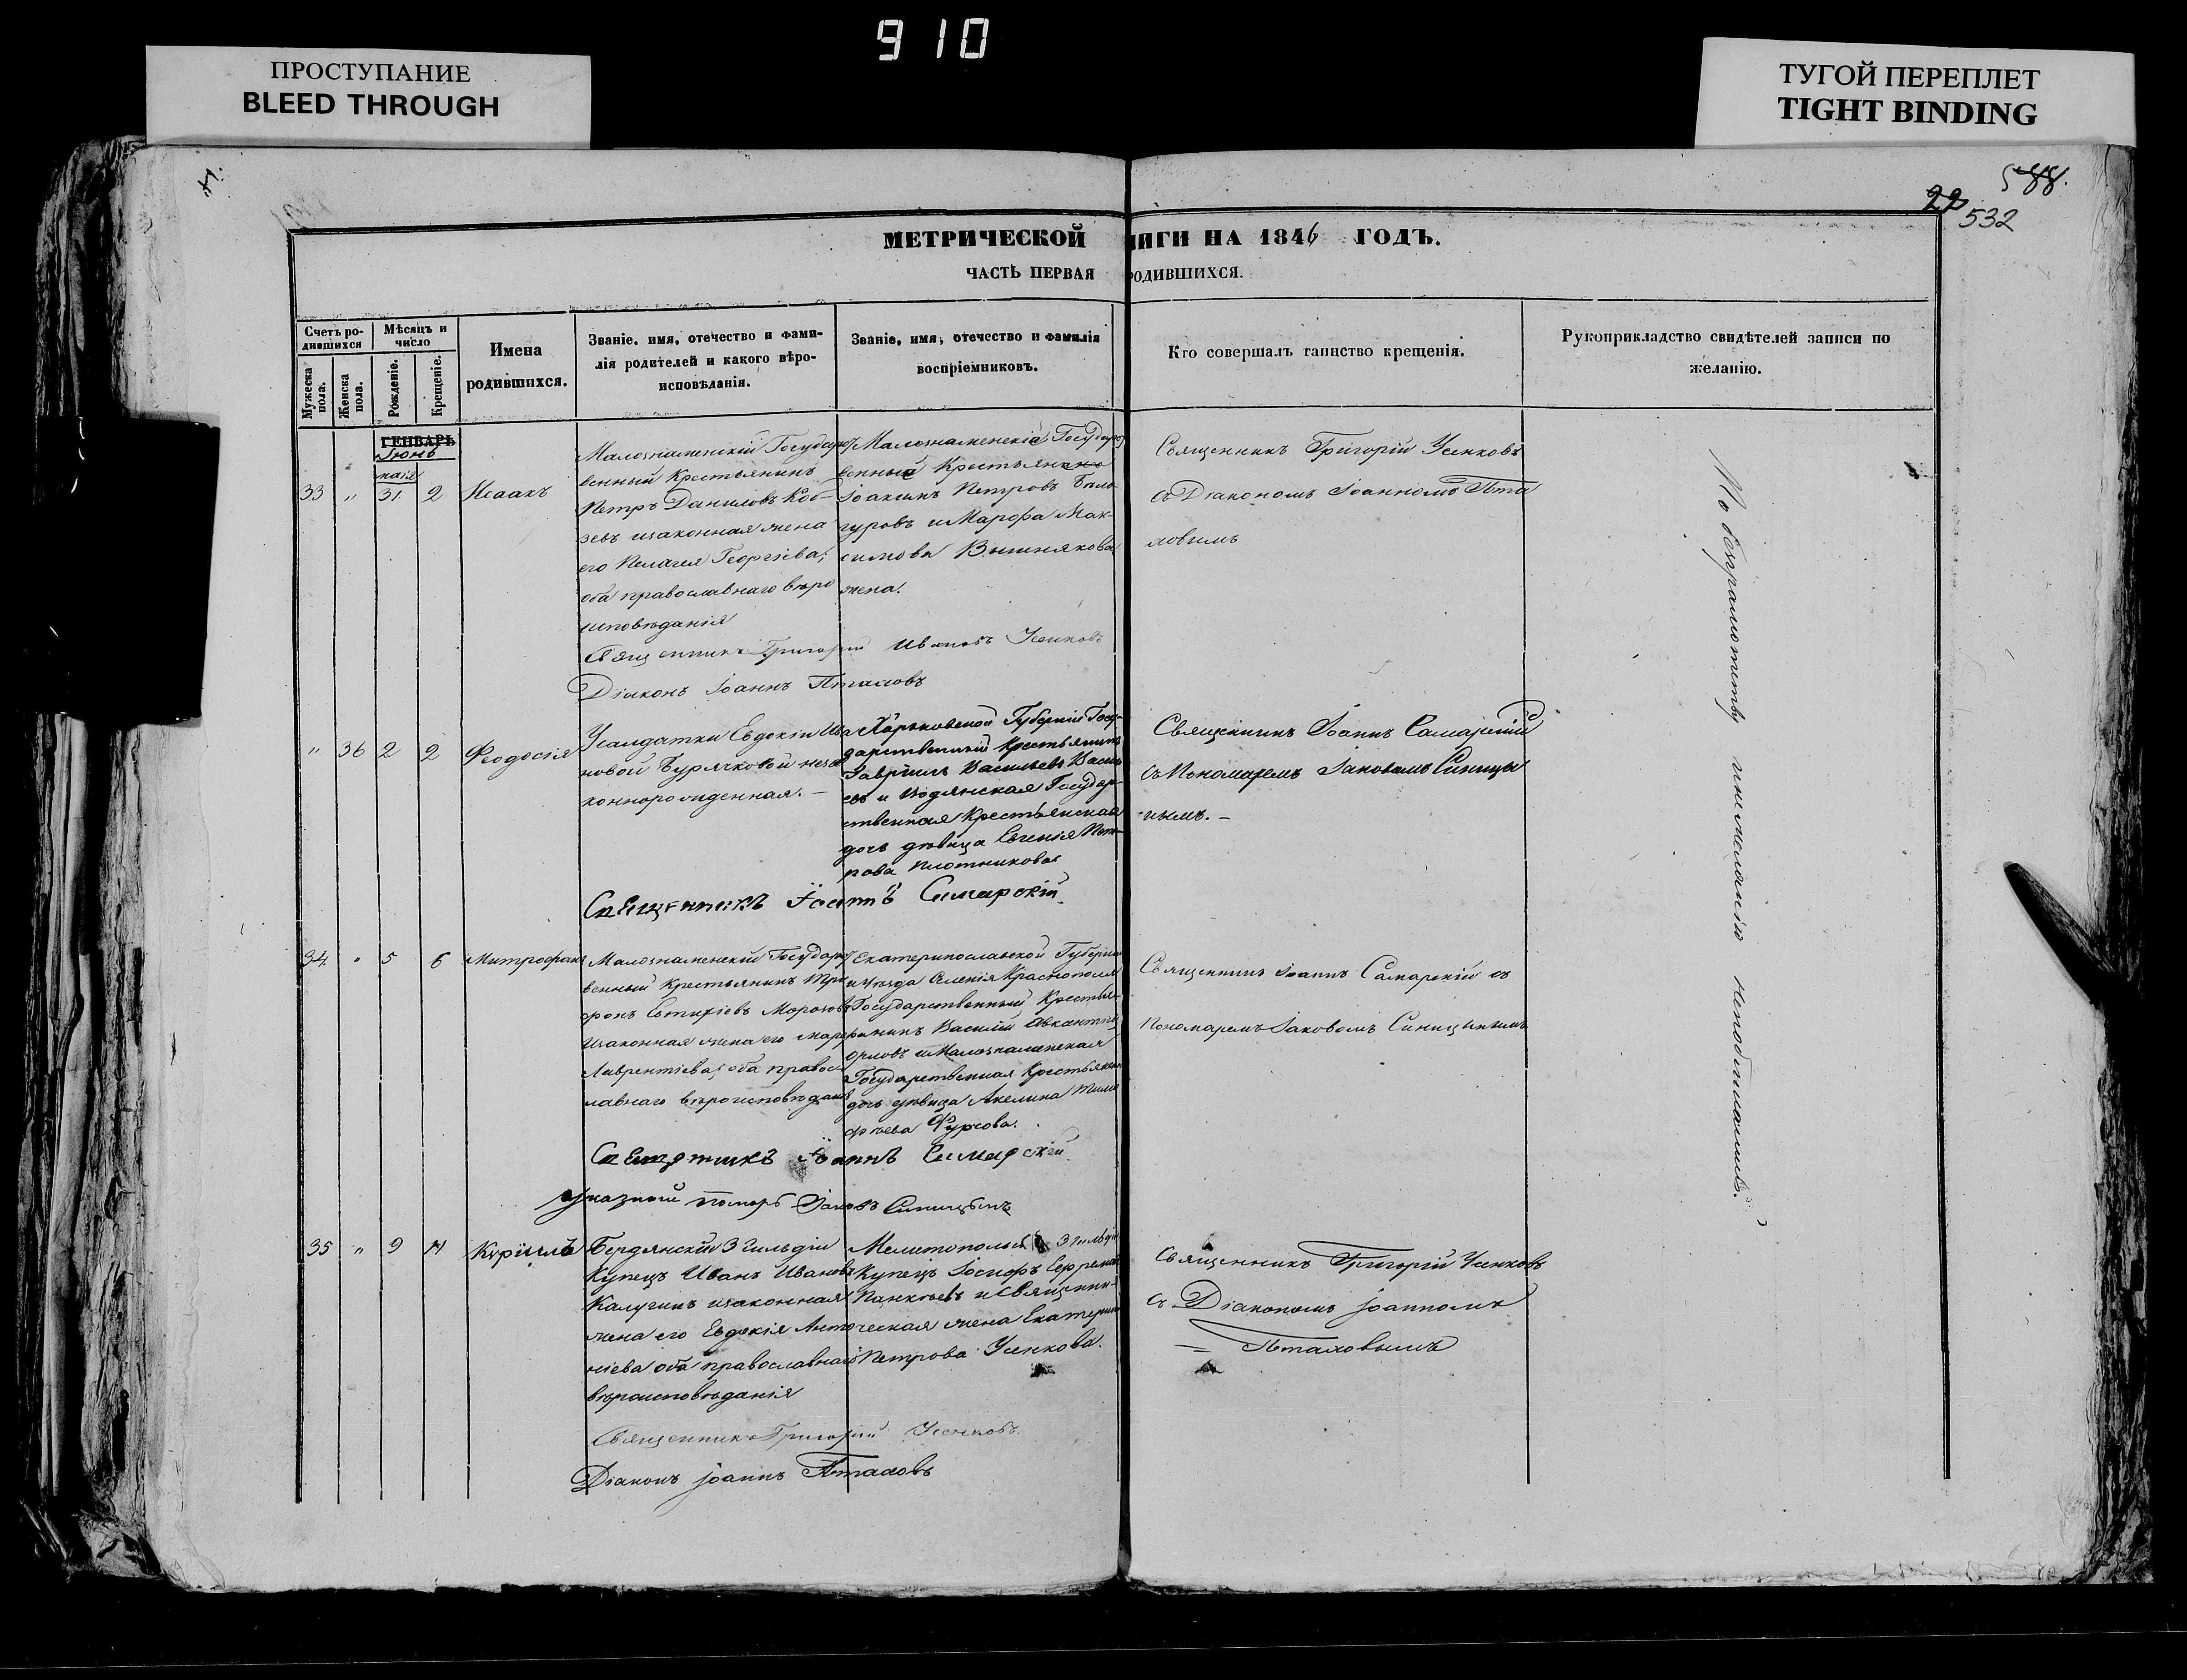 910
ПРОСТУПАНИЕ
BLEED THROUGH
ТУГОЙ ПЕРЕПЛЕТ
TIGHT BINDING
588.
22
532
МЕТРИЧЕСКОЙ НИГИ НА 1846 ГОДЪ.
ЧАСТЬ ПЕРВАЯ РОДИВШИХСЯ.
Счетъ ро-
дившихся
Мужеска
пола.
Женска
пола.
Мѣсяцъ и
число
Рожденіе.
Крещеніе.
Имена
родившихся.
Званіе, имя, отечество и фами-
лія родителей и какого вѣро-
исповѣданія.
Званіе, имя, отечество и фамилія
воспріемниковъ.
Кто совершалъ таинство крещенія.
Рукоприкладство свидѣтелей записи по
желанію.
ГЕНВАРЬ
Іюнь
маія
33 " 31. 2 Исаакъ
Малознаменскій Государст
венный Крестьянинъ
Петръ Даниловъ Коб-
зевъ изаконная жена
его Пелагея Георгіева,
оба православнаго вѣро
исповѣданія
Малознаменскіе Государст
венные Крестьяне
Іоакимъ Петровъ
и Марфа Мак-
симова Вишнякова
жена.
Священникъ Григорій Усенковъ
съ Діакономъ Іоанномъ Пта
ховымъ
Священникъ Григорій Ивановъ Усенковъ
Діаконъ Іоаннъ Птаховъ
" 36 2 2 Феодосія
Усалдатки Евдокіи Ива
новой Бурячковой неза
коннорожденная. –
Харьковской Губерніи Госу-
дарственный Крестьянинъ
Гавріилъ Васильевъ Васил
евъ и Водянская Государ-
ственная Крестьянская
дочь дѣвица Евгенія Пет-
рова Плотникова
Священникъ Іоаннъ Самарскій
съ Пономаремъ Іаковомъ Синицы
нымъ. –
Священникъ Іоаннъ Самарскій
34. " 5 6 Митрофанъ
Малознаменскій Государст
венный Крестьянинъ Три
фонъ Евтихіевъ Морозовъ
изаконная жена его Марфа
Лаврентіева; оба правос
лавнаго вѣроисповѣданія
Екатеринославской Губерніи
иуѣзда Селенія Краснополя
Государственный Крестья-
нинъ Василій
Орловъ и Малознаменская
Государственная Крестьянск
дочь дѣвица Акелина Тимо
фѣева Фурсова.
Священникъ Іоаннъ Самарскій съ
Пономаремъ Іаковомъ Синицынымъ
Священникъ Іоаннъ Самарскій
Указной Іаковъ Синицынъ
35 " 9 11 Курїиллъ
Бердянскій 3 Гильдіи
Купецъ Иванъ Ивановъ
Калугинъ изаконная
жена его Евдокія Анто
ніева оба православнаго
вѣроисповѣданія
Мелитопольск 3 Гильдіи
Купецъ Іосифъ Ефремовъ
Панкѣевъ и Священни-
ческая жена Екатерина
Петрова Усенкова.
Священникъ Григорій Усенковъ
съ Діакономъ Іоанномъ
Птаховымъ
Священникъ Григорій Усенковъ
Діаконъ Іоаннъ Птаховъ
По безграмотству инежеланію неподписались.